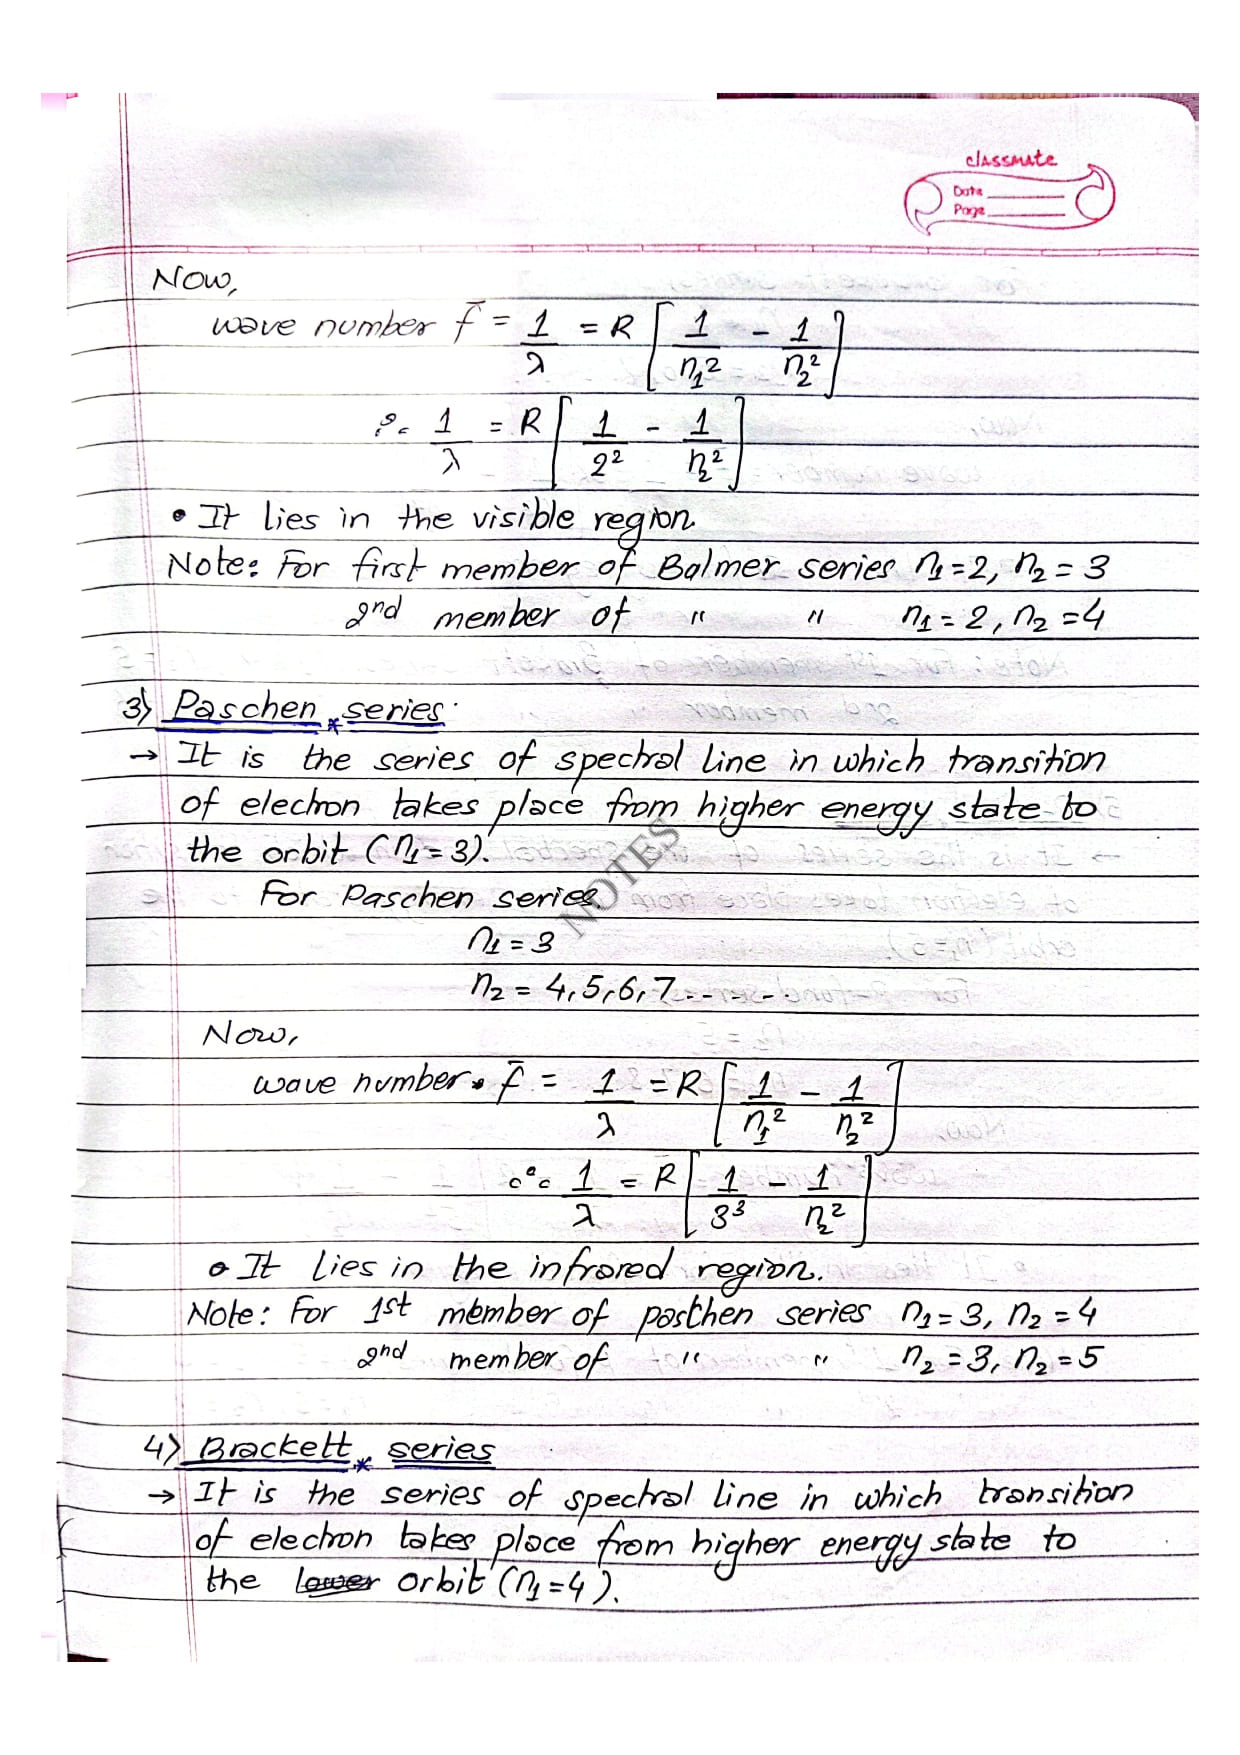 classmate
Date
Page
Now,
wave number f̄ = 1/λ = R [1/n₁² - 1/n₂²]
∴ 1/λ = R [1/2² - 1/n₂²]
• It lies in the visible region.
Note: For first member of Balmer series n₁=2, n₂=3
2nd member of " " n₁=2, n₂=4
3) Paschen * series
→ It is the series of spectral line in which transition
of electron takes place from higher energy state to
the orbit (n₁=3).
For Paschen series.
n₁=3
n₂ = 4,5,6,7......
Now,
wave number. f̄ = 1/λ = R [1/n₁² - 1/n₂²]
∴ 1/λ = R [1/3³ - 1/n₂²]
• It lies in the infrared region.
Note: For 1st member of pasthen series n₁=3, n₂=4
2nd member of " " n₂=3, n₂=5
4) Brackett * series
→ It is the series of spectral line in which transition
of electron takes place from higher energy state to
the lower orbit (n₁=4).
NOTES